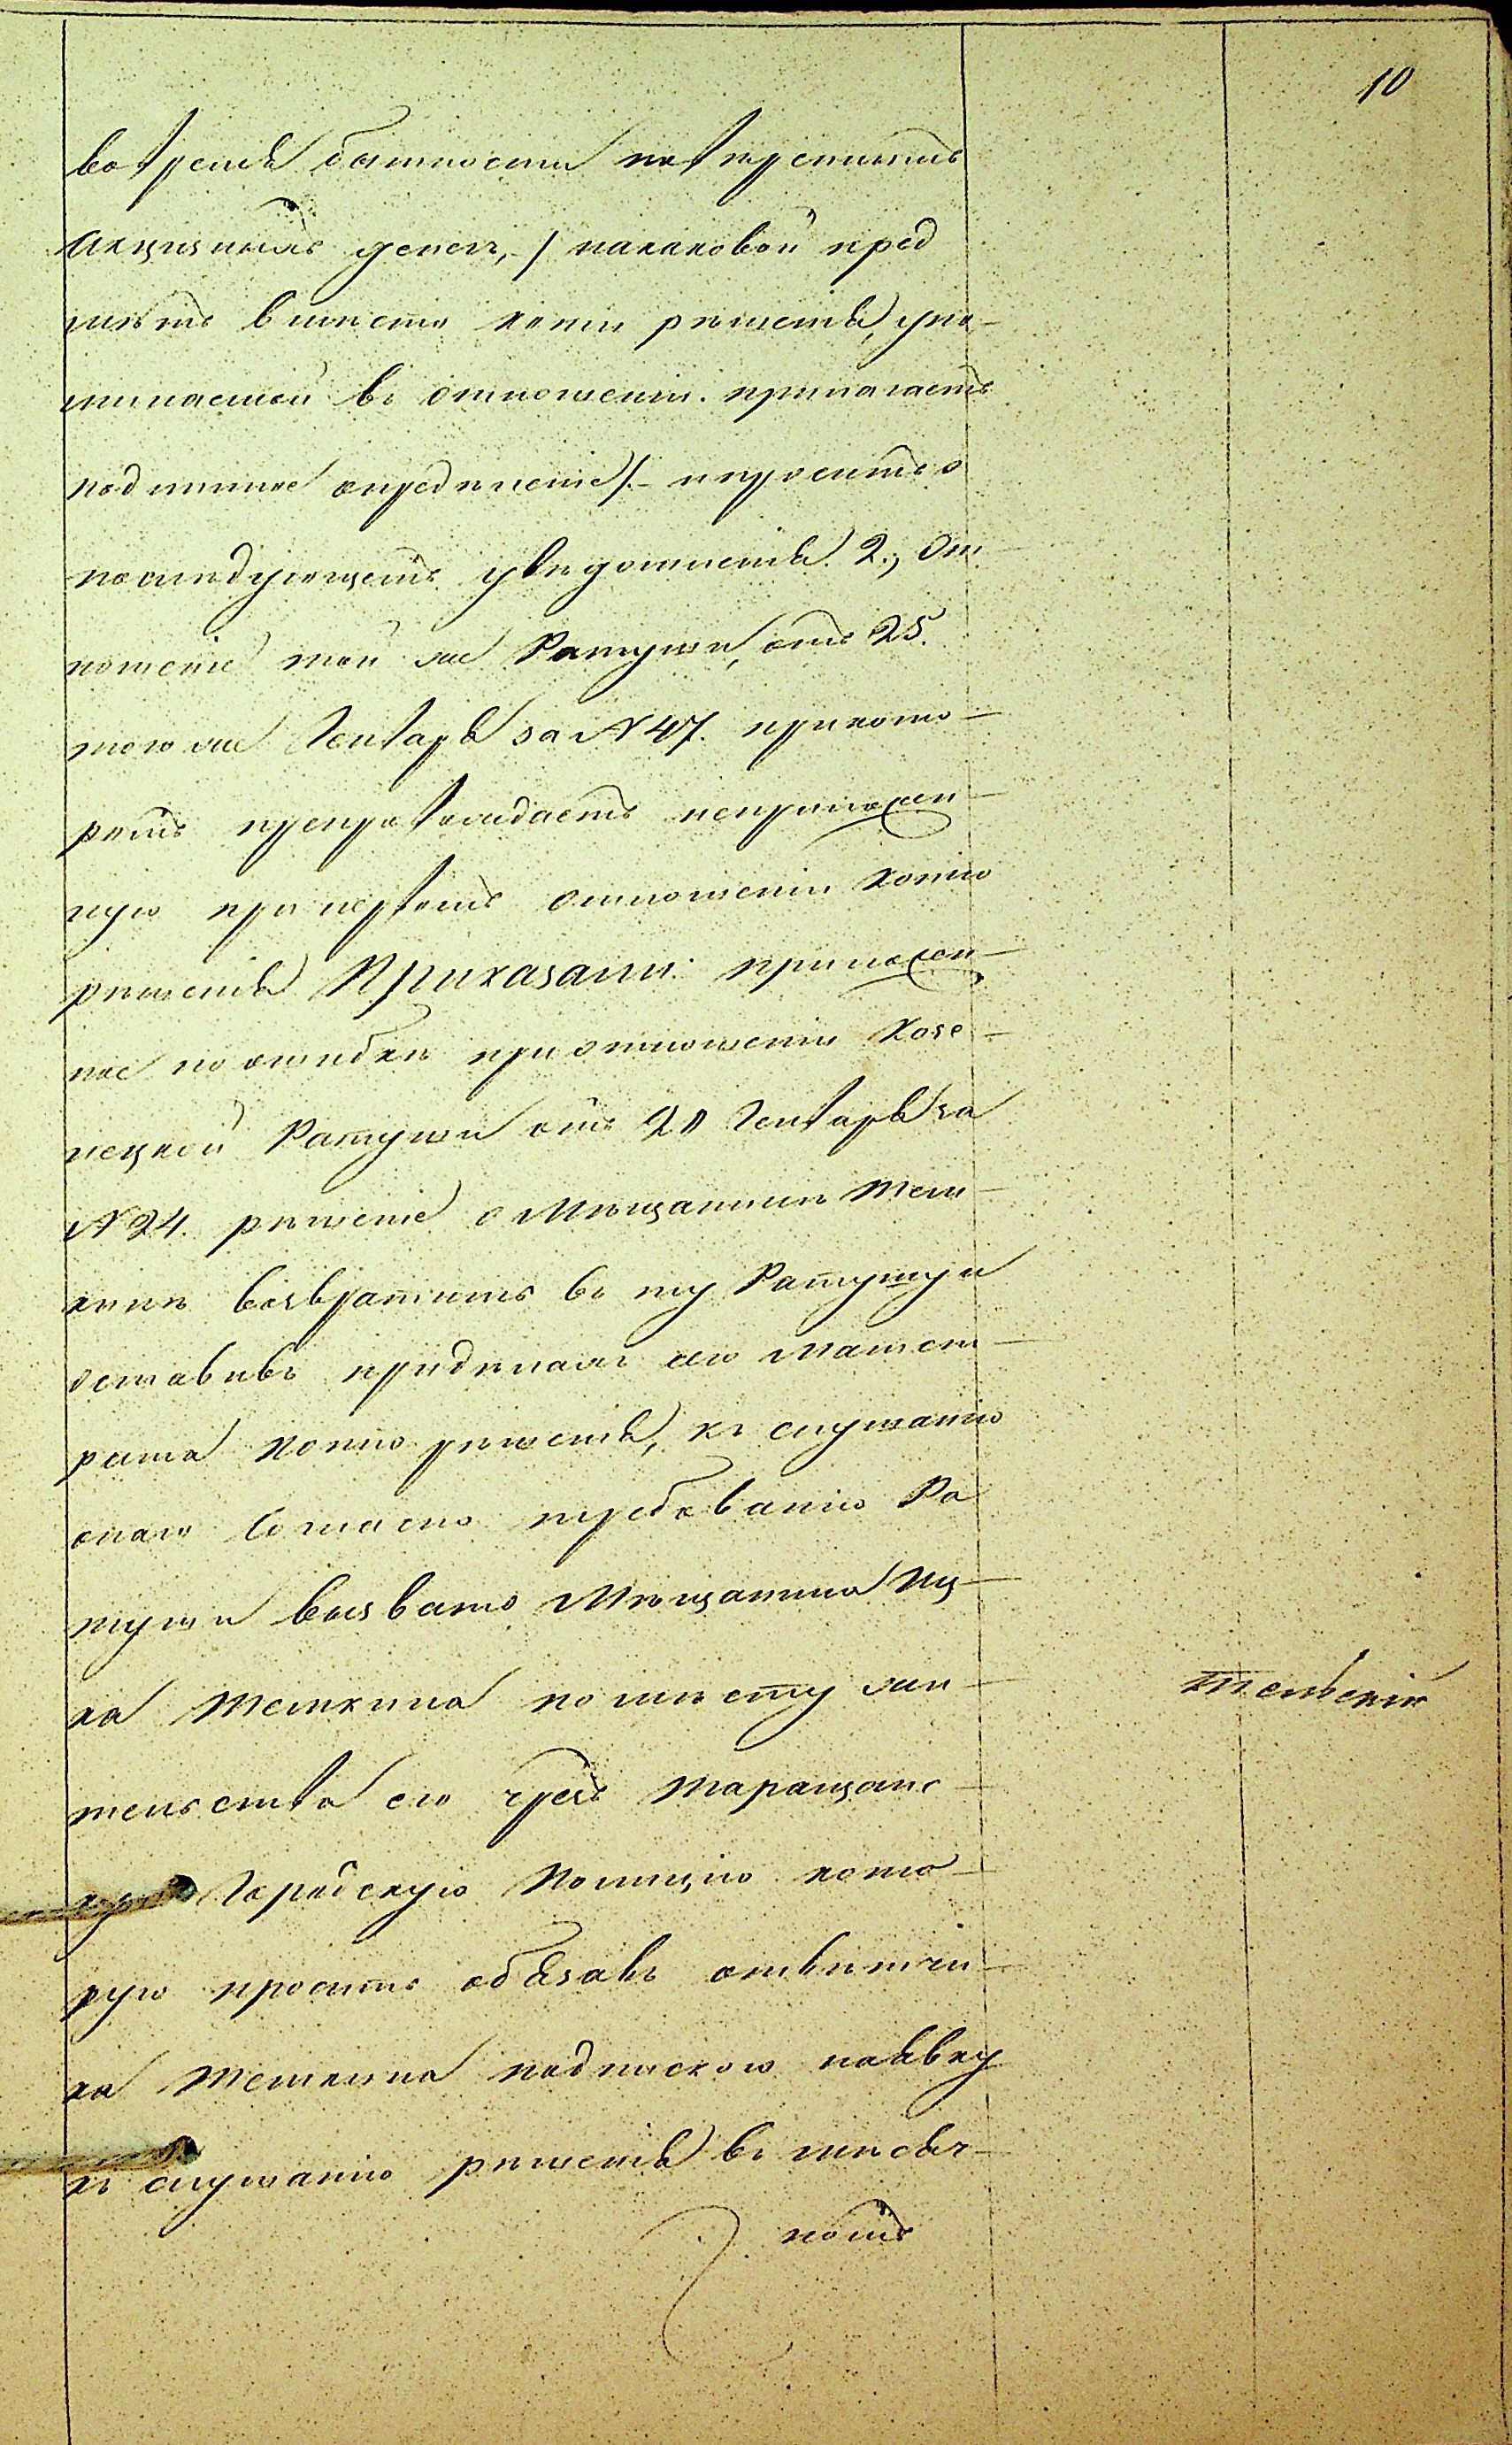 10
во время бытности на временныхъ
акцизныхъ денегъ, / накаковой пред
мѣтъ вместо копіи рѣшенія, упо-
минаемой въ отношеніи. прилагаетъ
подлинное опредѣленіе /. и проситъ о
послѣдующемъ увѣдомленія. 2., От
ношеніе той же Ратуши, отъ 25.
того же Генваря за N 47. при кото-
ромъ препровождаетъ неприложен-
ную при первомъ отношеніи копію
рѣшенія Приказали: приложен-
ное по ошибкѣ при отношеніи Хозе-
нецкой Ратуши отъ 20 Генваря за
N 24. рѣшеніе о Мѣщанинѣ Тем-
кинѣ возвратить въ ту Ратушу и
оставивъ при дѣлахъ сего Магист-
рата копію рѣшенія, къ слушанію
онаго Согласно требованію Ра
туши вызвать Мѣщанина Иц-
ка Темкина по мѣсту жи-
тельства его чрезъ Таращанс-
кую Городскую Полицію кото-
рую просить обязавъ ответчи-
ка Темкина подпискою на явку
къ слушанію рѣшенія въ мѣсяч-
номъ